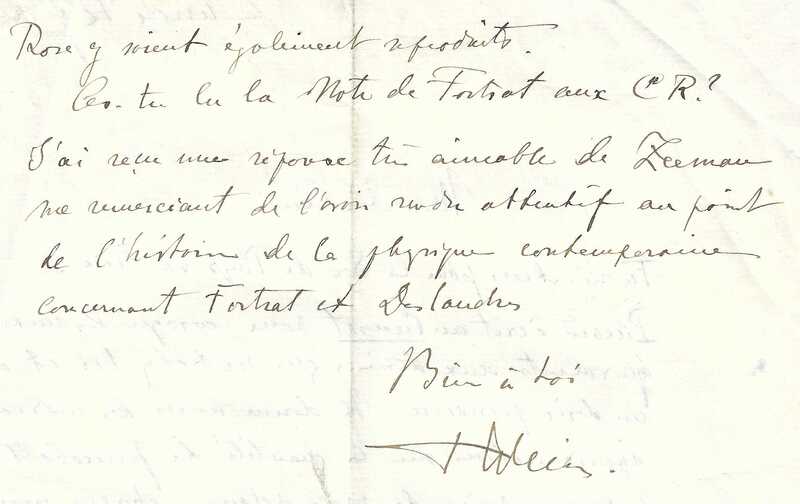 Rose y soient également reproduits.
As-tu lu la Note de Fortrat aux CR?
J'ai reçu une réponse très aimable de Zeeman
me remerciant de l'avoir rendu attentif au point
de l'histoire de la physique contemporaine
concernant Fortrat et Deslandres
Bien à toi